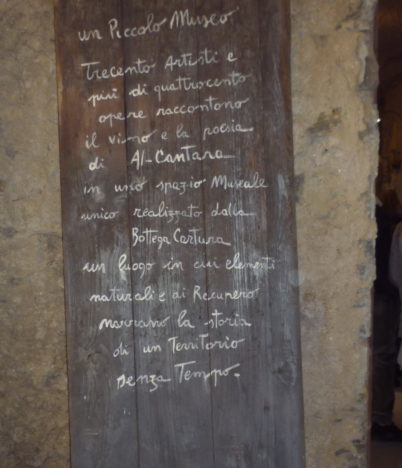 un Piccolo Museo
Trecento Artisti e
più di quattrocento
opere raccontono
il vino e la poesia
di Al-Cantara
in uno spazio Museale
unico realizzato dalla
Bottega Cartura
un luogo in cui elementi
naturali e di Recupero
narrano la storia
di un Territorio
senza Tempo.